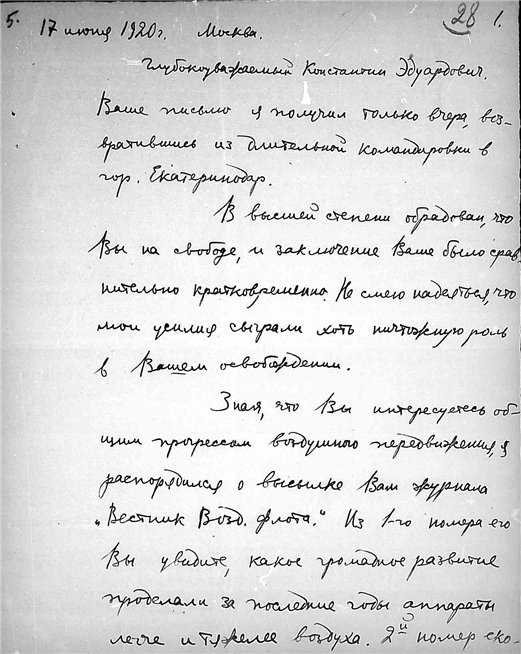 5. 17 июня 1920 г. Москва. 28 1.
Глубокоуважаемый Константин Эдуардович.
Ваше письмо я получил только вчера, воз-
вратившись из длительной командировки в
гор. Екатеринодар.
В высшей степени обрадован, что
Вы на свободе, и заключение Ваше было срав-
нительно кратковременно. Не смею надеяться, что
мои усилия сыграли хоть ничтожную роль
в Вашем освобождении.
Зная, что Вы интересуетесь об-
щим прогрессом воздушного передвижения, я
распорядился о высылке Вам журнала
„Вестник Возд. флота." Из 1-го номера его
Вы увидите, какое громадное развитие
проделали за последние годы аппараты
легче и тяжелее воздуха. 2й номер ско-